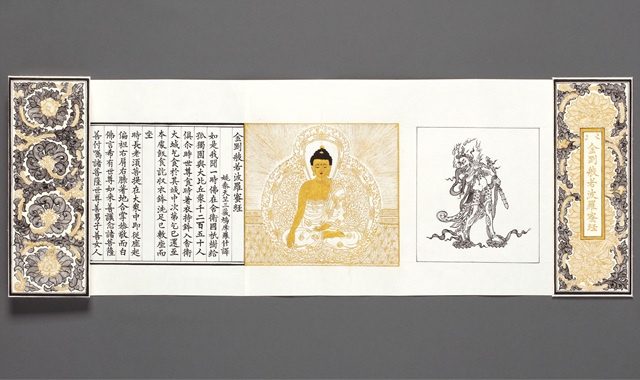 金剛般若波羅蜜經
金剛般若波羅蜜經
姚秦天竺三藏鳩摩羅什譯
如是我聞一時佛在舍衛國祇樹給
孤獨園與大比丘衆千二百五十人
俱尒時世尊食時著衣持鉢入舍衛
大城乞食於其城中次第乞已還至
本處飯食訖收衣鉢洗足已敷座而
坐
時長老須菩提在大衆中即從座起
偏袒右肩右膝著地合掌恭敬而白
佛言希有世尊如來善護念諸菩薩
善付囑諸菩薩世尊善男子善女人